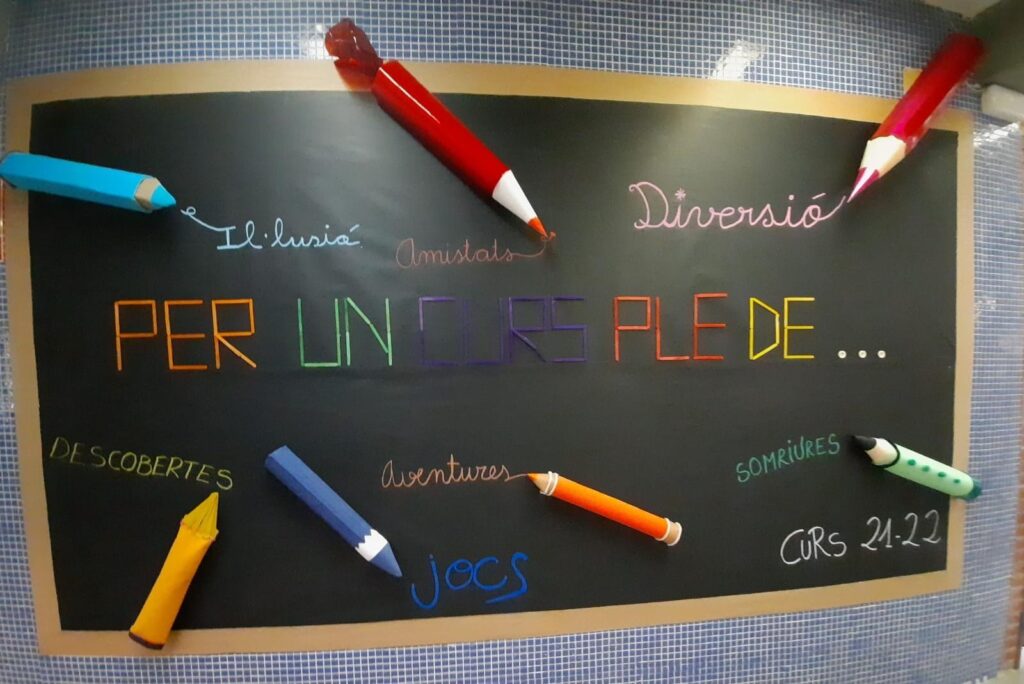 Il·lusió
Amistats
Diversió
PER UN CURS PLE DE ...
DESCOBERTES
Aventures
SOMRIURES
JOCS
CURS 21-22